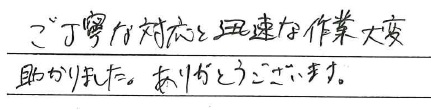 ご丁寧な対応と迅速な作業大変
助かりました。ありがとうございます。